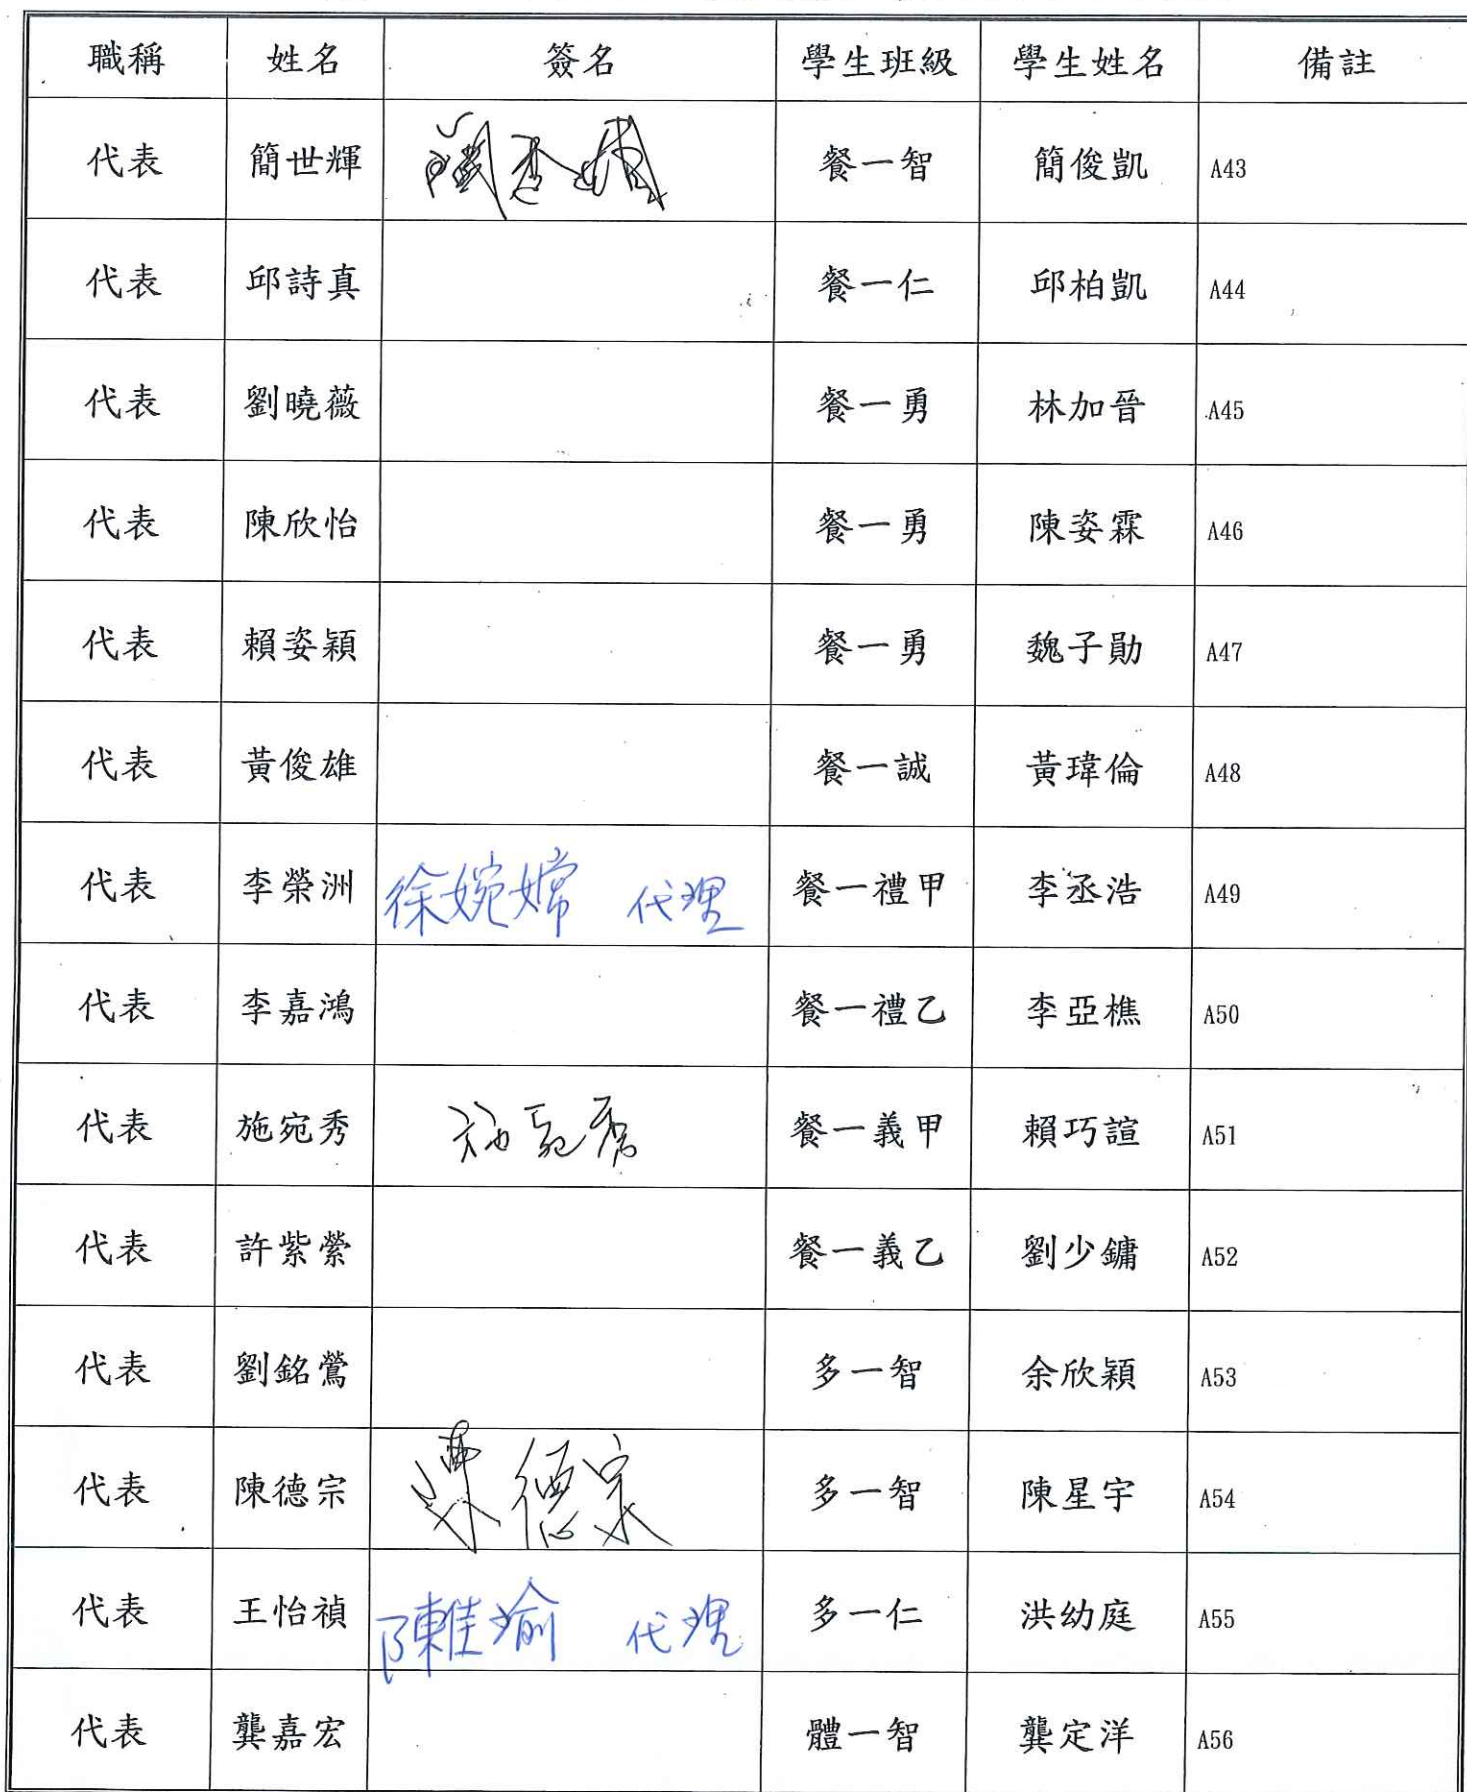 職稱 姓名 簽名 學生班級 學生姓名 備註
代表 簡世輝 餐一智 簡俊凱 A43
代表 邱詩真 餐一仁 邱柏凱 A44
代表 劉曉薇 餐一勇 林加晉 A45
代表 陳欣怡 餐一勇 陳姿霖 A46
代表 賴姿穎 餐一勇 魏子勛 A47
代表 黃俊雄 餐一誠 黃瑋倫 A48
代表 李榮洲 徐婉嫦 代理 餐一禮甲 李丞浩 A49
代表 李嘉鴻 餐一禮乙 李亞樵 A50
代表 施宛秀 施宛秀 餐一義甲 賴巧諠 A51
代表 許紫縈 餐一義乙 劉少鏞 A52
代表 劉銘鶯 多一智 余欣穎 A53
代表 陳德宗 陳德宗 多一智 陳星宇 A54
代表 王怡禎 陳佳瑜 代理 多一仁 洪幼庭 A55
代表 龔嘉宏 體一智 龔定洋 A56